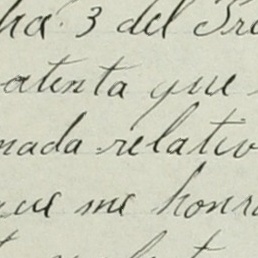 ha. 3 del
atenta que
nada relativ
que me honr